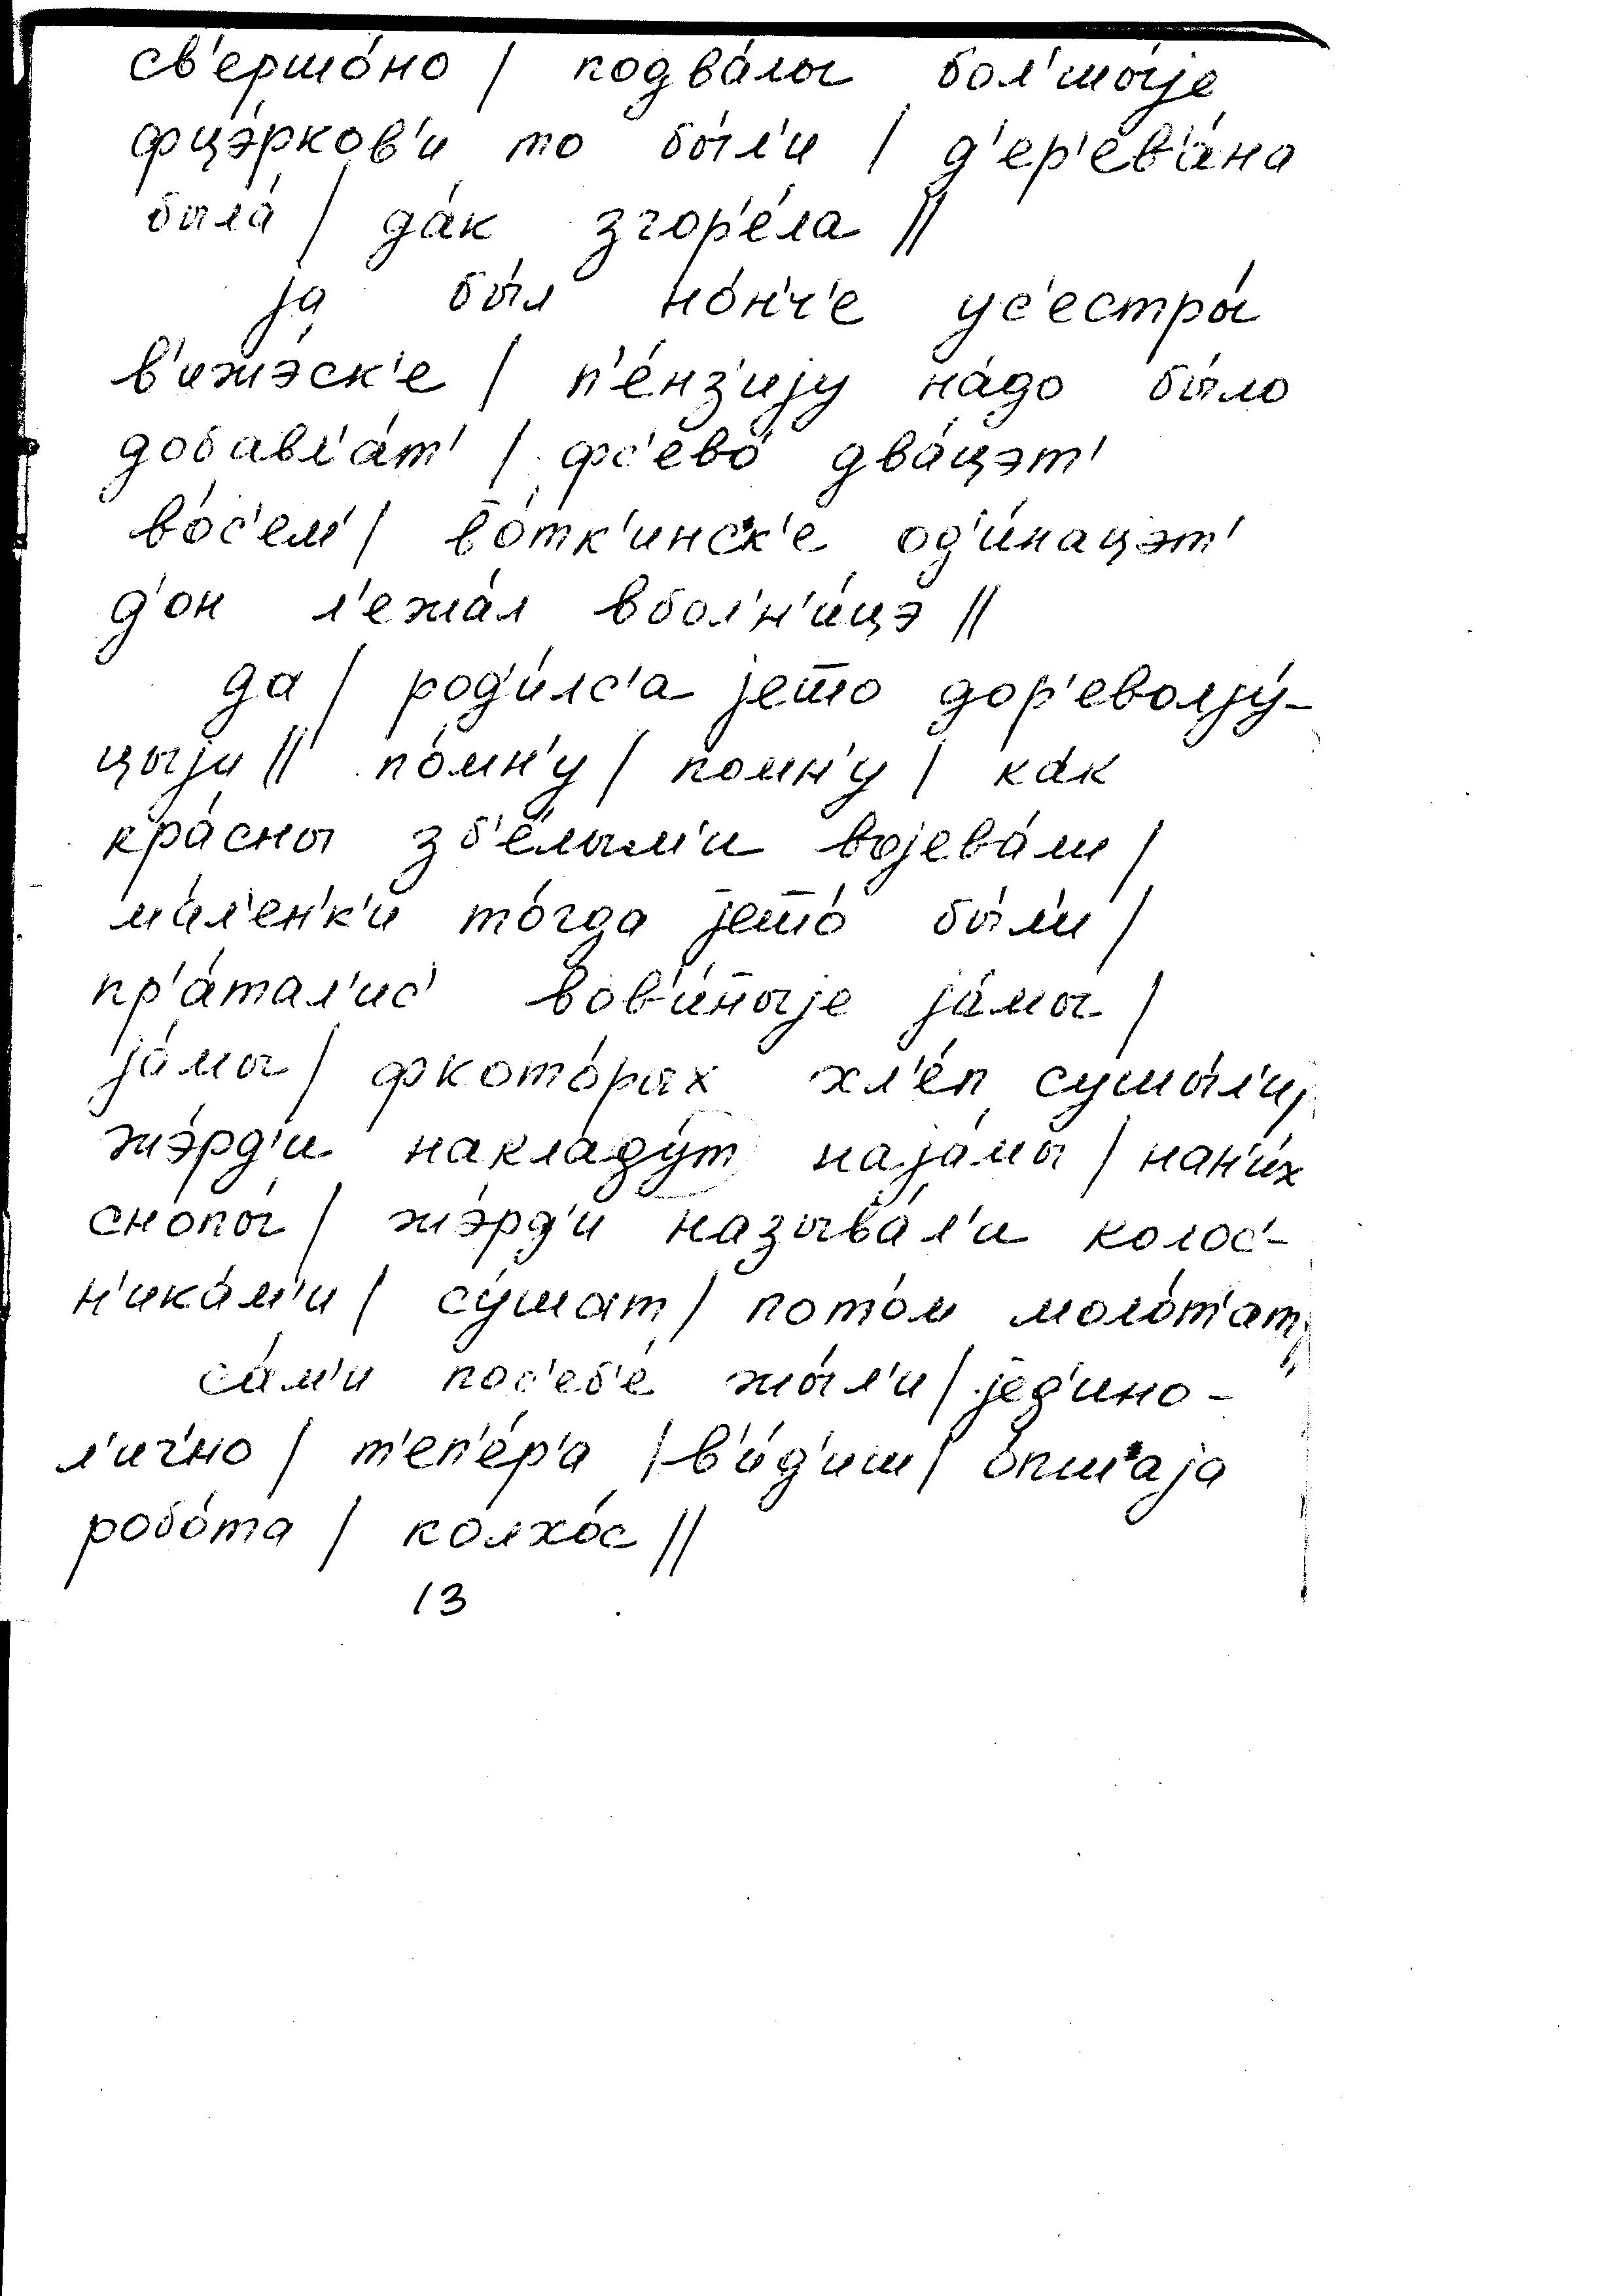 св'ершо́но / подва́лы бол'шы́jе
фцэ́рков'и то бы́л'и / д'ер'ев'а́на
была́ / да́к згор'е́ла //
jа бы́л но́н'ч'е ус'естры́
в'ижэ́ск'е / п'е́нз'иjу на́до бы́ло
добавл'а́т' / фс'ево́ два́цэт'
во́с'ем' / в̄о́тк'инск'е од'и́нацэт'
д'он л'ежа́л вбол'н'и́цэ //
да / род'и́лс'а jеш̄о дор'еволjу́-
цыjи // по́мн'у / помн'у / ка́к
кра́сны зб'е́лым'и воjева́ли /
ма́л'ен'к'и то́гда jеш̄о́ бы́л'и /
пр'а́тал'ис' вов'и́н̄ыjе jа́мы /
jа́мы / фкото́рых хл'е́п сушы́л'и /
жэ́рд'и накладу́т наjа́мы / нан'и́х
снопы́ / жэ́рд'и называ́л'и колос'-
н'ика́м'и / су́шат / пото́м моло́т'ат //
са́м'и пос'еб'е́ жы́л'и / jед'ино-
л'ич'но / т'еп'е́р'а / в'и́д'иш / о́пш'аjа
робо́та / колхо́с //
13